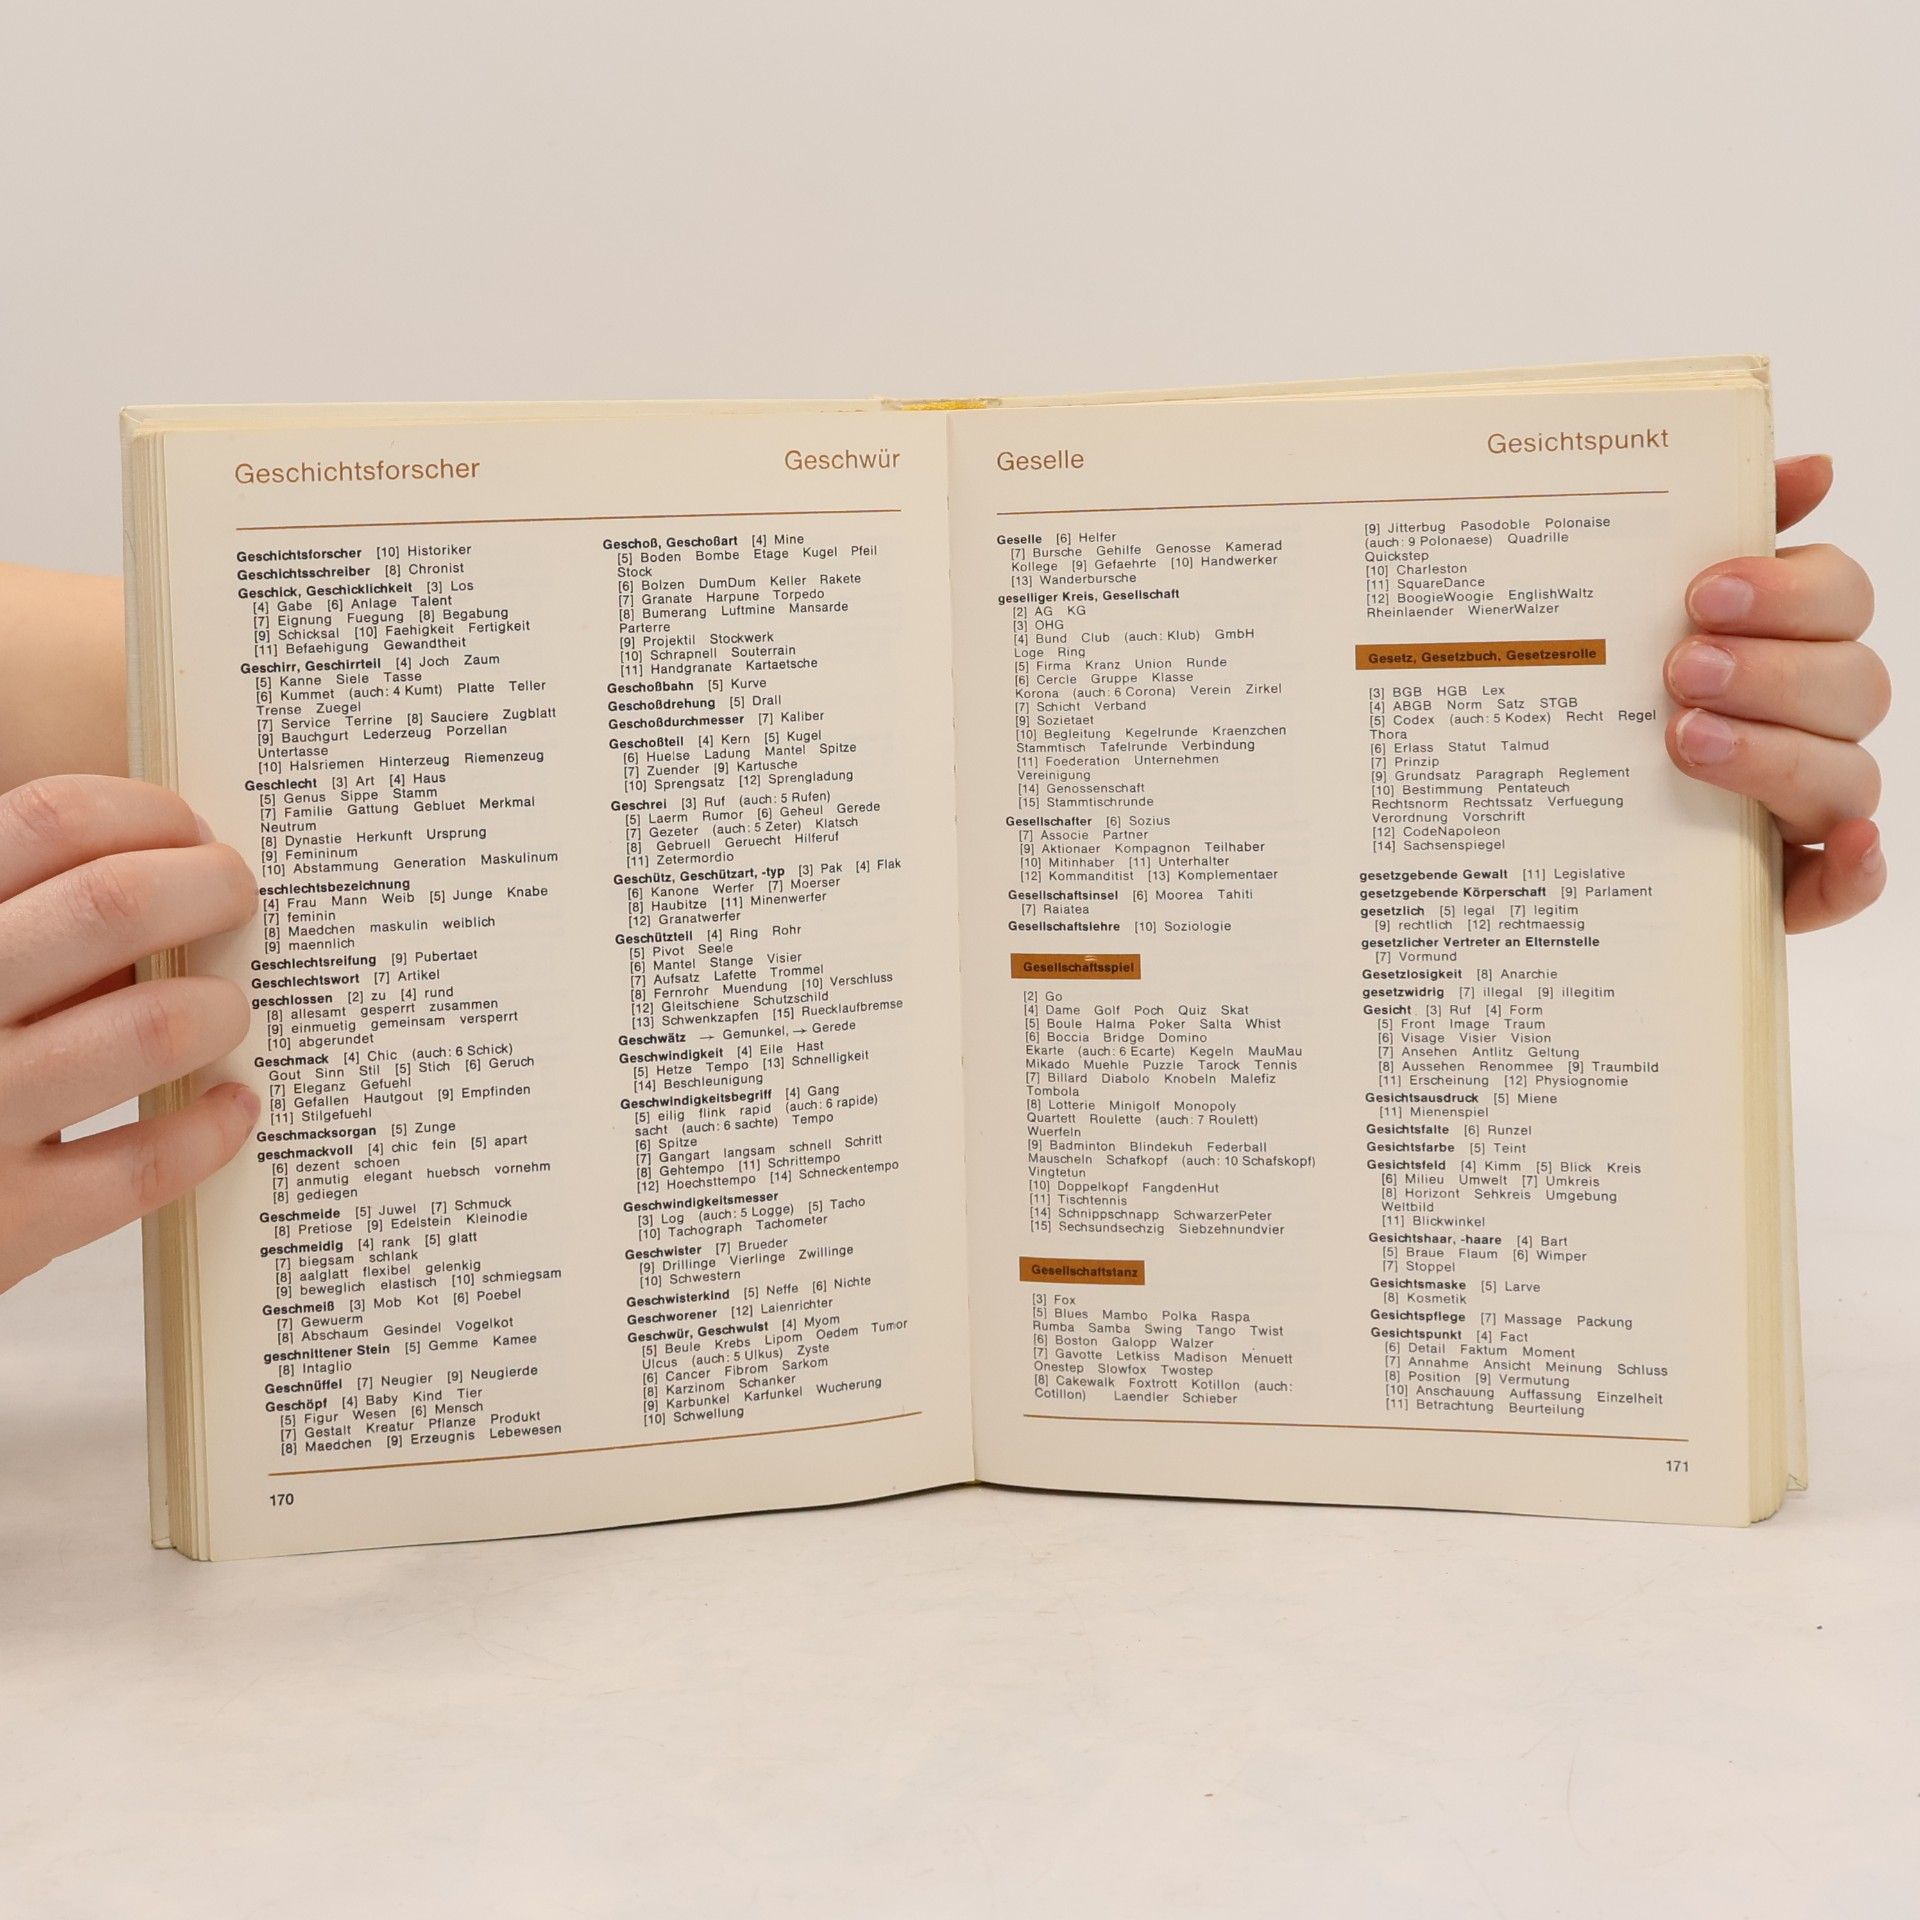 Geschichtsforscher
Geschwür
Geschichtsforscher [10] Historiker
Geschichtsschreiber [8] Chronist
Geschick, Geschicklichkeit [3] Los
[4] Gabe [6] Anlage Talent
[7] Eignung Fuegung [8] Begabung
[9] Schicksal [10] Faehigkeit Fertigkeit
[11] Befaehigung Gewandtheit
Geschirr, Geschirrteil [4] Joch Zaum
[5] Kanne Siele Tasse
[6] Kummet (auch: 4 Kumt) Platte Teller
Trense Zuegel
[7] Service Terrine [8] Sauciere Zugblatt
[9] Bauchgurt Lederzeug Porzellan
Untertasse
[10] Halsriemen Hinterzeug Riemenzeug
Geschlecht [3] Art [4] Haus
[5] Genus Sippe Stamm
[7] Familie Gattung Gebluet Merkmal
Neutrum
[8] Dynastie Herkunft Ursprung
[9] Femininum
[10] Abstammung Generation Maskulinum
eschlechtsbezeichnung
[4] Frau Mann Weib [5] Junge Knabe
[7] feminin
[8] Maedchen maskulin weiblich
[9] maennlich
Geschlechtsreifung [9] Pubertaet
Geschlechtswort [7] Artikel
geschlossen [2] zu [4] rund
[8] allesamt gesperrt zusammen
[9] einmuetig gemeinsam versperrt
[10] abgerundet
Geschmack [4] Chic (auch: 6 Schick)
Gout Sinn Stil [5] Stich [6] Geruch
[7] Eleganz Gefuehl
[8] Gefallen Hautgout [9] Empfinden
[11] Stilgefuehl
Geschmacksorgan [5] Zunge
geschmackvoll [4] chic fein [5] apart
[6] dezent schoen
[7] anmutig elegant huebsch vornehm
[8] gediegen
Geschmeide [5] Juwel [7] Schmuck
[8] Pretiose [9] Edelstein Kleinodie
geschmeidig [4] rank [5] glatt
[7] biegsam schlank
[8] aalglatt flexibel gelenkig
[9] beweglich elastisch [10] schmiegsam
Geschmeiß [3] Mob Kot [6] Poebel
[7] Gewuerm
[8] Abschaum Gesindel Vogelkot
geschnittener Stein [5] Gemme Kamee
[8] Intaglio
Geschnüffel [7] Neugier [9] Neugierde
Geschöpf [4] Baby Kind Tier
[5] Figur Wesen [6] Mensch
[7] Gestalt Kreatur Pflanze Produkt
[8] Maedchen [9] Erzeugnis Lebewesen
Geschoß, Geschoßart [4] Mine
[5] Boden Bombe Etage Kugel Pfeil
Stock
[6] Bolzen DumDum Keller Rakete
[7] Granate Harpune Torpedo
[8] Bumerang Luftmine Mansarde
Parterre
[9] Projektil Stockwerk
[10] Schrapnell Souterrain
[11] Handgranate Kartaetsche
Geschoßbahn [5] Kurve
Geschoßdrehung [5] Drall
Geschoßdurchmesser [7] Kaliber
Geschoßteil [4] Kern [5] Kugel
[6] Huelse Ladung Mantel Spitze
[7] Zuender [9] Kartusche
[10] Sprengsatz [12] Sprengladung
Geschrei [3] Ruf (auch: 5 Rufen)
[5] Laerm Rumor [6] Geheul Gerede
[7] Gezeter (auch: 5 Zeter) Klatsch
[8] Gebruell Geruecht Hilferuf
[11] Zetermordio
Geschütz, Geschützart, -typ [3] Pak [4] Flak
[6] Kanone Werfer [7] Moerser
[8] Haubitze [11] Minenwerfer
[12] Granatwerfer
Geschützteil [4] Ring Rohr
[5] Pivot Seele
[6] Mantel Stange Visier
[7] Aufsatz Lafette Trommel
[8] Fernrohr Muendung [10] Verschluss
[12] Gleitschiene Schutzschild
[13] Schwenkzapfen [15] Ruecklaufbremse
Geschwätz → Gemunkel, → Gerede
Geschwindigkeit [4] Eile Hast
[5] Hetze Tempo [13] Schnelligkeit
[14] Beschleunigung
Geschwindigkeitsbegriff [4] Gang
[5] eilig flink rapid (auch: 6 rapide)
sacht (auch: 6 sachte) Tempo
[6] Spitze
[7] Gangart langsam schnell Schritt
[8] Gehtempo [11] Schrittempo
[12] Hoechsttempo [14] Schneckentempo
Geschwindigkeitsmesser
[3] Log (auch: 5 Logge) [5] Tacho
[10] Tachograph Tachometer
Geschwister [7] Brueder
[9] Drillinge Vierlinge Zwillinge
[10] Schwestern
Geschwisterkind [5] Neffe [6] Nichte
Geschworener [12] Laienrichter
Geschwür, Geschwulst [4] Myom
[5] Beule Krebs Lipom Oedem Tumor
Ulcus (auch: 5 Ulkus) Zyste
[6] Cancer Fibrom Sarkom
[8] Karzinom Schanker
[9] Karbunkel Karfunkel Wucherung
[10] Schwellung
170
Geselle
Gesichtspunkt
Geselle [6] Helfer
[7] Bursche Gehilfe Genosse Kamerad
Kollege [9] Gefaehrte [10] Handwerker
[13] Wanderbursche
geselliger Kreis, Gesellschaft
[2] AG KG
[3] OHG
[4] Bund Club (auch: Klub) GmbH
Loge Ring
[5] Firma Kranz Union Runde
[6] Cercle Gruppe Klasse
Korona (auch: 6 Corona) Verein Zirkel
[7] Schicht Verband
[9] Sozietaet
[10] Begleitung Kegelrunde Kraenzchen
Stammtisch Tafelrunde Verbindung
[11] Foederation Unternehmen
Vereinigung
[14] Genossenschaft
[15] Stammtischrunde
Gesellschafter [6] Sozius
[7] Associe Partner
[9] Aktionaer Kompagnon Teilhaber
[10] Mitinhaber [11] Unterhalter
[12] Kommanditist [13] Komplementaer
Gesellschaftsinsel [6] Moorea Tahiti
[7] Raiatea
Gesellschaftslehre [10] Soziologie
Gesellschaftsspiel
[2] Go
[4] Dame Golf Poch Quiz Skat
[5] Boule Halma Poker Salta Whist
[6] Boccia Bridge Domino
Ekarte (auch: 6 Ecarte) Kegeln MauMau
Mikado Muehle Puzzle Tarock Tennis
[7] Billard Diabolo Knobeln Malefiz
Tombola
[8] Lotterie Minigolf Monopoly
Quartett Roulette (auch: 7 Roulett)
Wuerfeln
[9] Badminton Blindekuh Federball
Mauscheln Schafkopf (auch: 10 Schafskopf)
Vingtetun
[10] Doppelkopf FangdenHut
[11] Tischtennis
[14] Schnippschnapp SchwarzerPeter
[15] Sechsundsechzig Siebzehnundvier
Gesellschaftstanz
[3] Fox
[5] Blues Mambo Polka Raspa
Rumba Samba Swing Tango Twist
[6] Boston Galopp Walzer
[7] Gavotte Letkiss Madison Menuett
Onestep Slowfox Twostep
[8] Cakewalk Foxtrott Kotillon (auch:
Cotillon) Laendler Schieber
[9] Jitterbug Pasodoble Polonaise
(auch: 9 Polonaese) Quadrille
Quickstep
[10] Charleston
[11] SquareDance
[12] BoogieWoogie EnglishWaltz
Rheinlaender WienerWalzer
Gesetz, Gesetzbuch, Gesetzesrolle
[3] BGB HGB Lex
[4] ABGB Norm Satz STGB
[5] Codex (auch: 5 Kodex) Recht Regel
Thora
[6] Erlass Statut Talmud
[7] Prinzip
[9] Grundsatz Paragraph Reglement
[10] Bestimmung Pentateuch
Rechtsnorm Rechtssatz Verfuegung
Verordnung Vorschrift
[12] CodeNapoleon
[14] Sachsenspiegel
gesetzgebende Gewalt [11] Legislative
gesetzgebende Körperschaft [9] Parlament
gesetzlich [5] legal [7] legitim
[9] rechtlich [12] rechtmaessig
gesetzlicher Vertreter an Elternstelle
[7] Vormund
Gesetzlosigkeit [8] Anarchie
gesetzwidrig [7] illegal [9] illegitim
Gesicht [3] Ruf [4] Form
[5] Front Image Traum
[6] Visage Visier Vision
[7] Ansehen Antlitz Geltung
[8] Aussehen Renommee [9] Traumbild
[11] Erscheinung [12] Physiognomie
Gesichtsausdruck [5] Miene
[11] Mienenspiel
Gesichtsfalte [6] Runzel
Gesichtsfarbe [5] Teint
Gesichtsfeld [4] Kimm [5] Blick Kreis
[6] Milieu Umwelt [7] Umkreis
[8] Horizont Sehkreis Umgebung
Weltbild
[11] Blickwinkel
Gesichtshaar, -haare [4] Bart
[5] Braue Flaum [6] Wimper
[7] Stoppel
Gesichtsmaske [5] Larve
[8] Kosmetik
Gesichtspflege [7] Massage Packung
Gesichtspunkt [4] Fact
[6] Detail Faktum Moment
[7] Annahme Ansicht Meinung Schluss
[8] Position [9] Vermutung
[10] Anschauung Auffassung Einzelheit
[11] Betrachtung Beurteilung
171